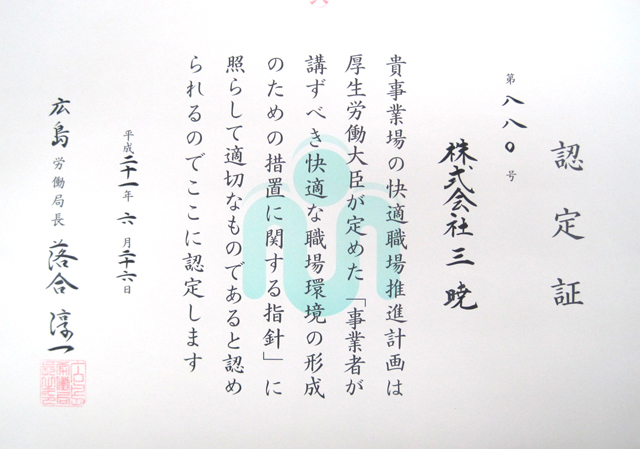 認定証
第八八〇号
株式会社三暁
貴事業場の快適職場推進計画は
厚生労働大臣が定めた「事業者が
講ずべき快適な職場環境の形成
のための措置に関する指針」に
照らして適切なものであると認め
られるのでここに認定します
平成二十一年六月二十六日
広島労働局長 落合淳一